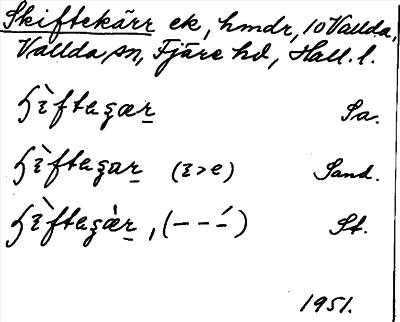 Skiftekärr ek, hmdr, 10 Vallda,
Vallda sn, Fjäre hd, Hall. l.
Sa.
(ɛ>e) Sand.
, (- - -́) St.
1951.